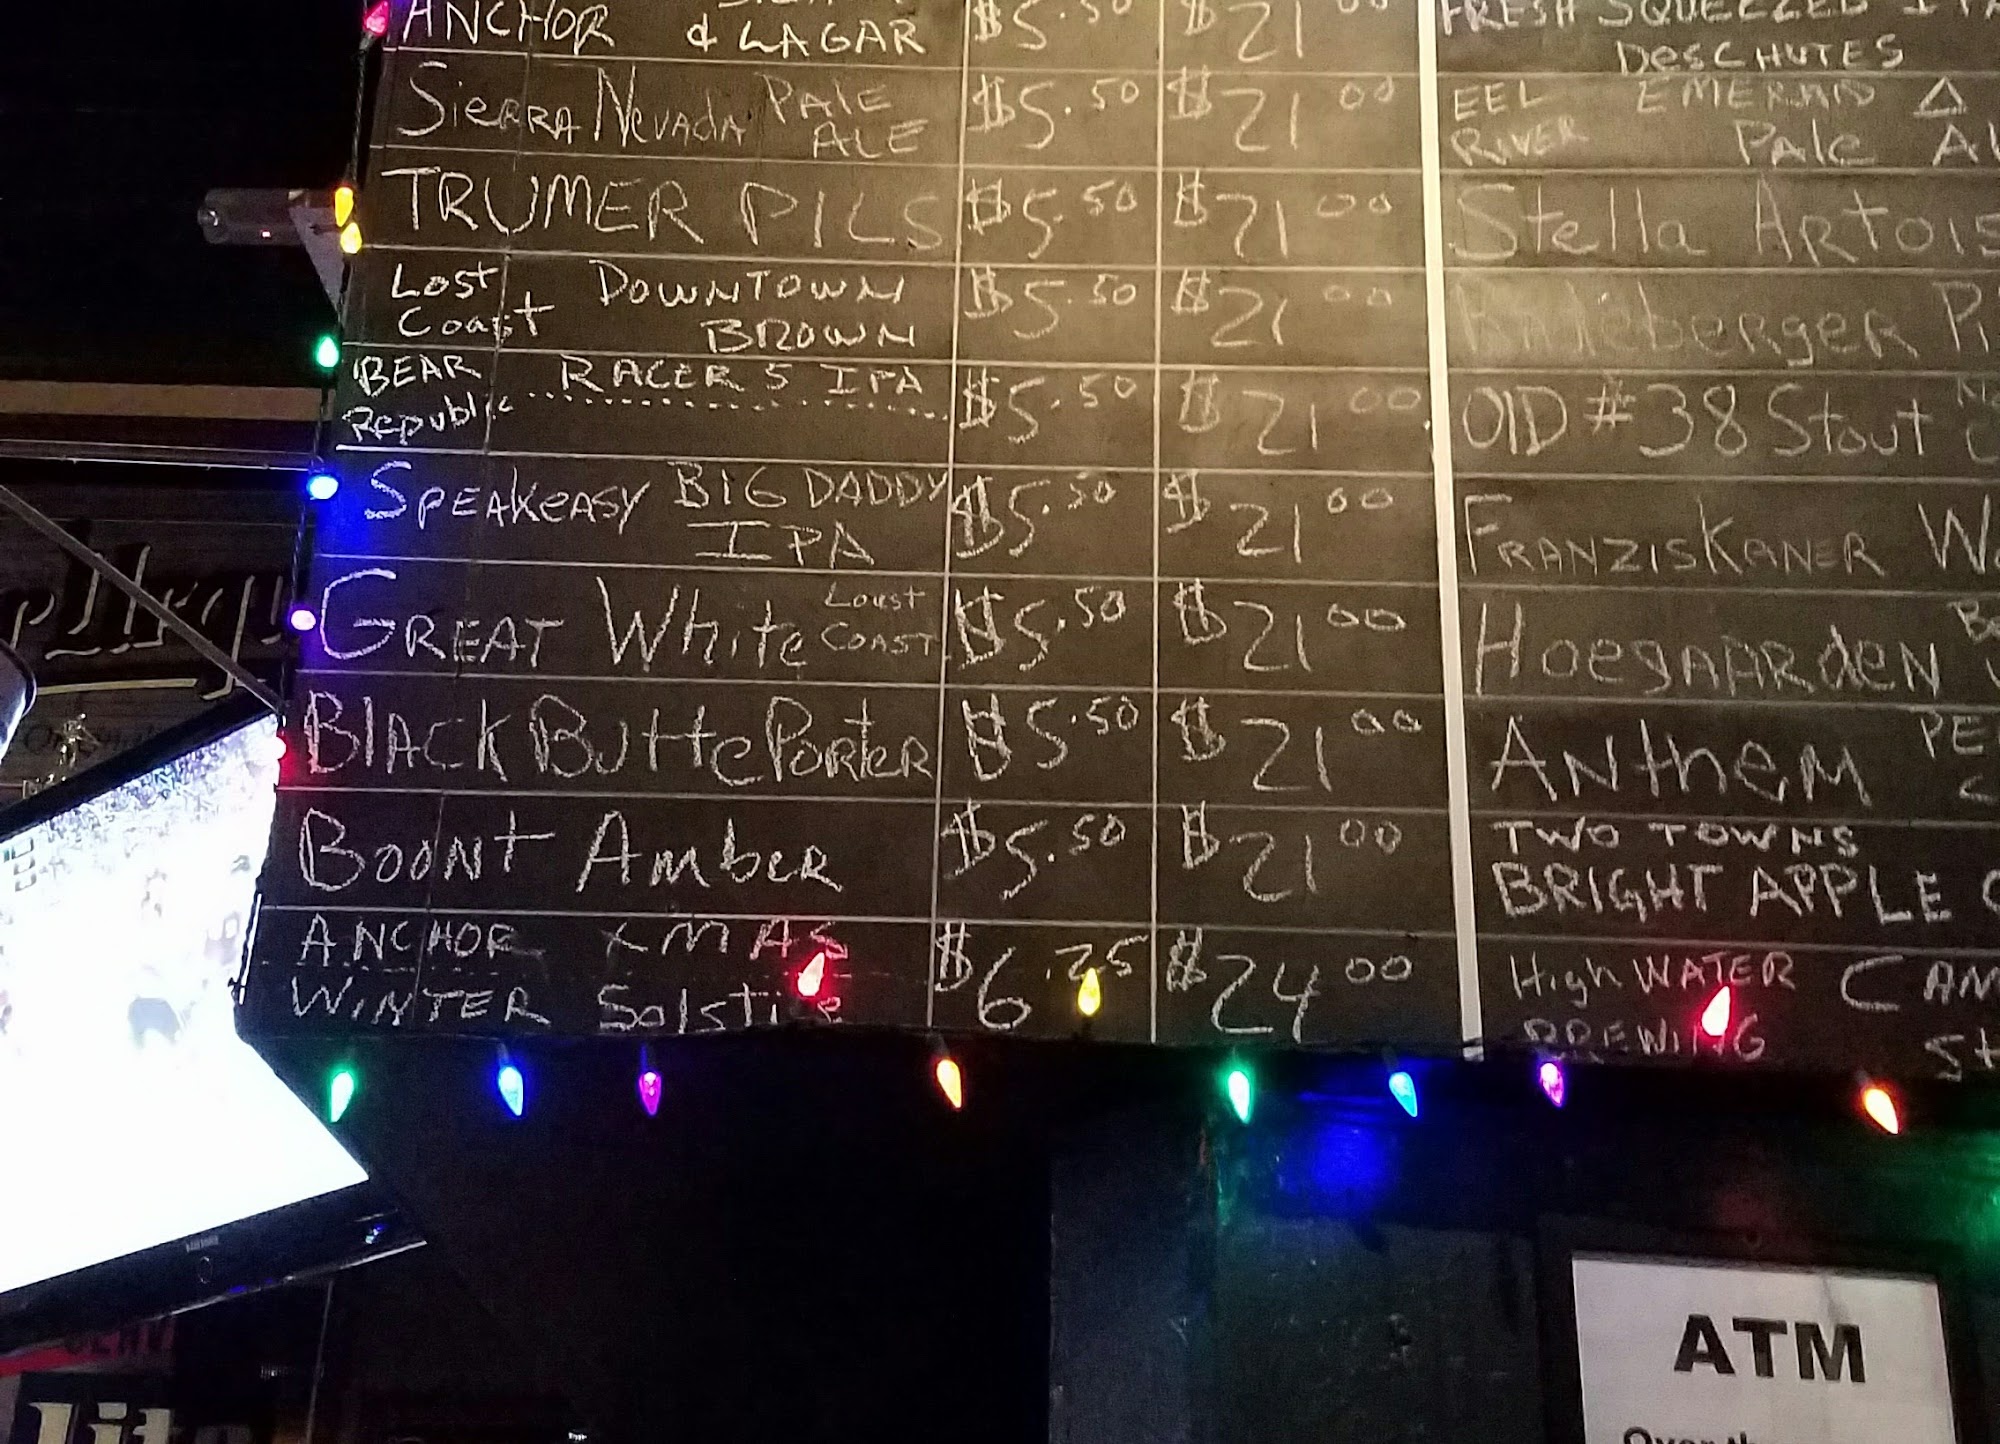 ANCHOR & LAGAR $5.50 $21.00
Sierra Nevada Pale ALE $5.50 $21 00
TRUMER PILS $5.50 $21 00
Lost Coast DOWNTOWN BROWN $5.50 $21 00
BEAR Republic RACER 5 IPA $5.50 $21 00
SPEAKEASY BIG DADDY IPA $5.50 $21 00
GREAT White Loust COAST $5.50 $21 00
BLACK Butte Porter $5.50 $21 00
BOONT Amber $5.50 $21 00
ANCHOR XMAS $6.25 $24 00
WINTER Solstice
FRESH SQUEEZED IPA
DESCHUTES
EEL RIVER EMERALD △
Pale
Stella Artois
OlD #38 Stout
FRANZISKANER
HOEGAARDEN
ANTHEM
TWO TOWNS
BRIGHT APPLE
High WATER
BREWING
ATM